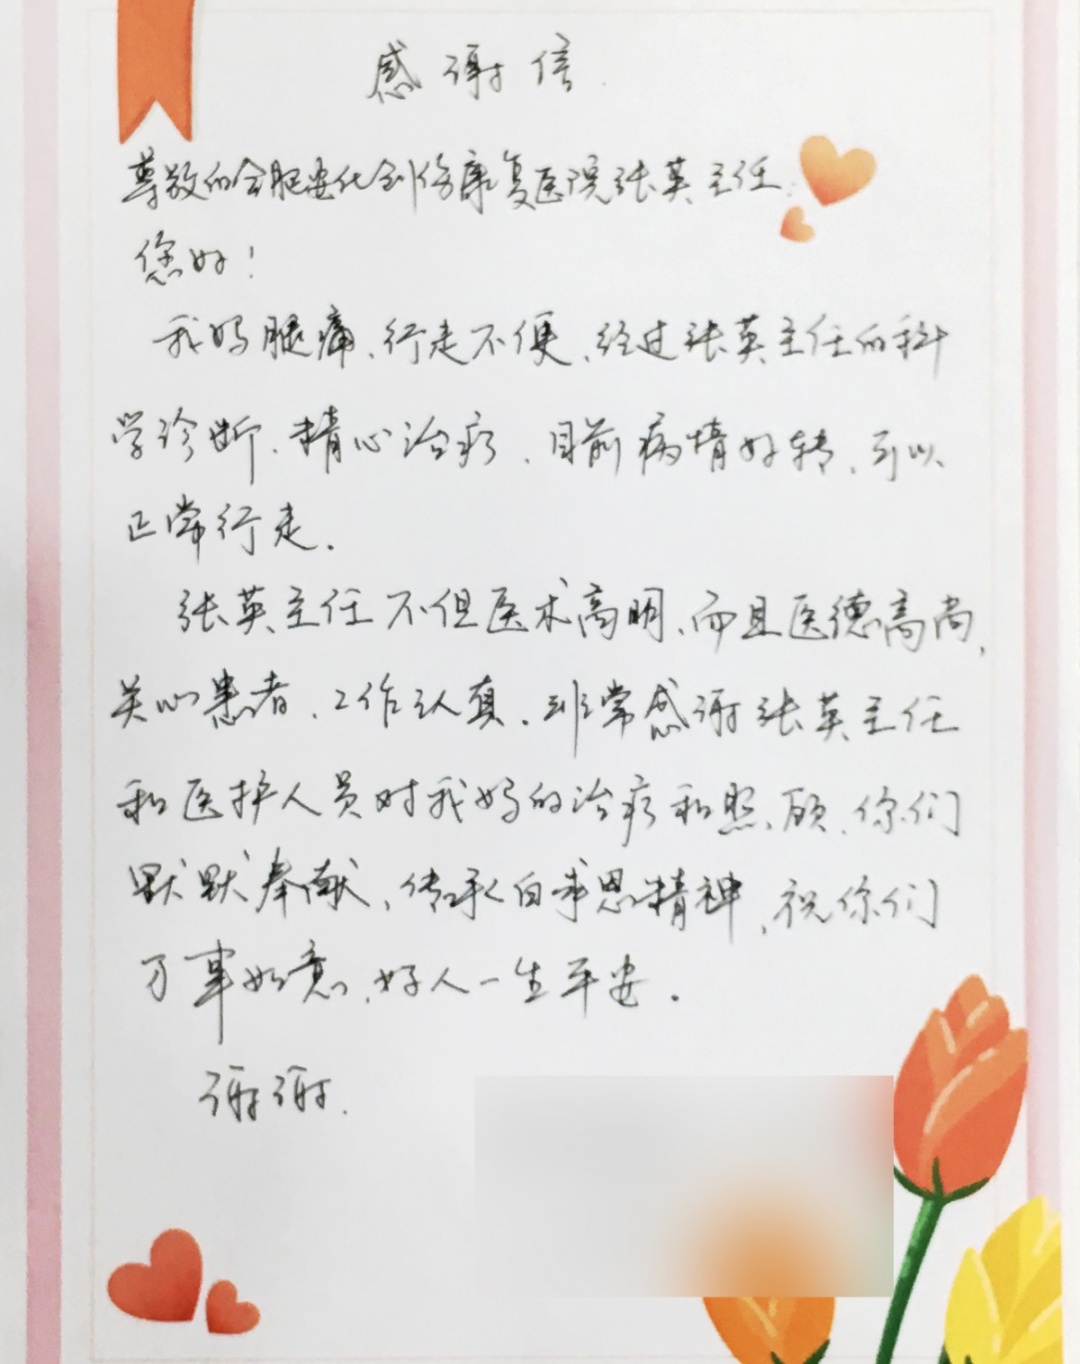 感谢信.
尊敬的合肥安化创伤康复医院张英主任:
您好!
我妈腿痛、行走不便、经过张英主任的科
学诊断、精心治疗、目前病情好转、可以
正常行走.
张英主任不但医术高明、而且医德高尚,
关心患者、工作认真、非常感谢张英主任
和医护人员对我妈的治疗和照顾、你们
默默奉献,传承白求恩精神,祝你们
万事如意、好人一生平安.
谢谢.